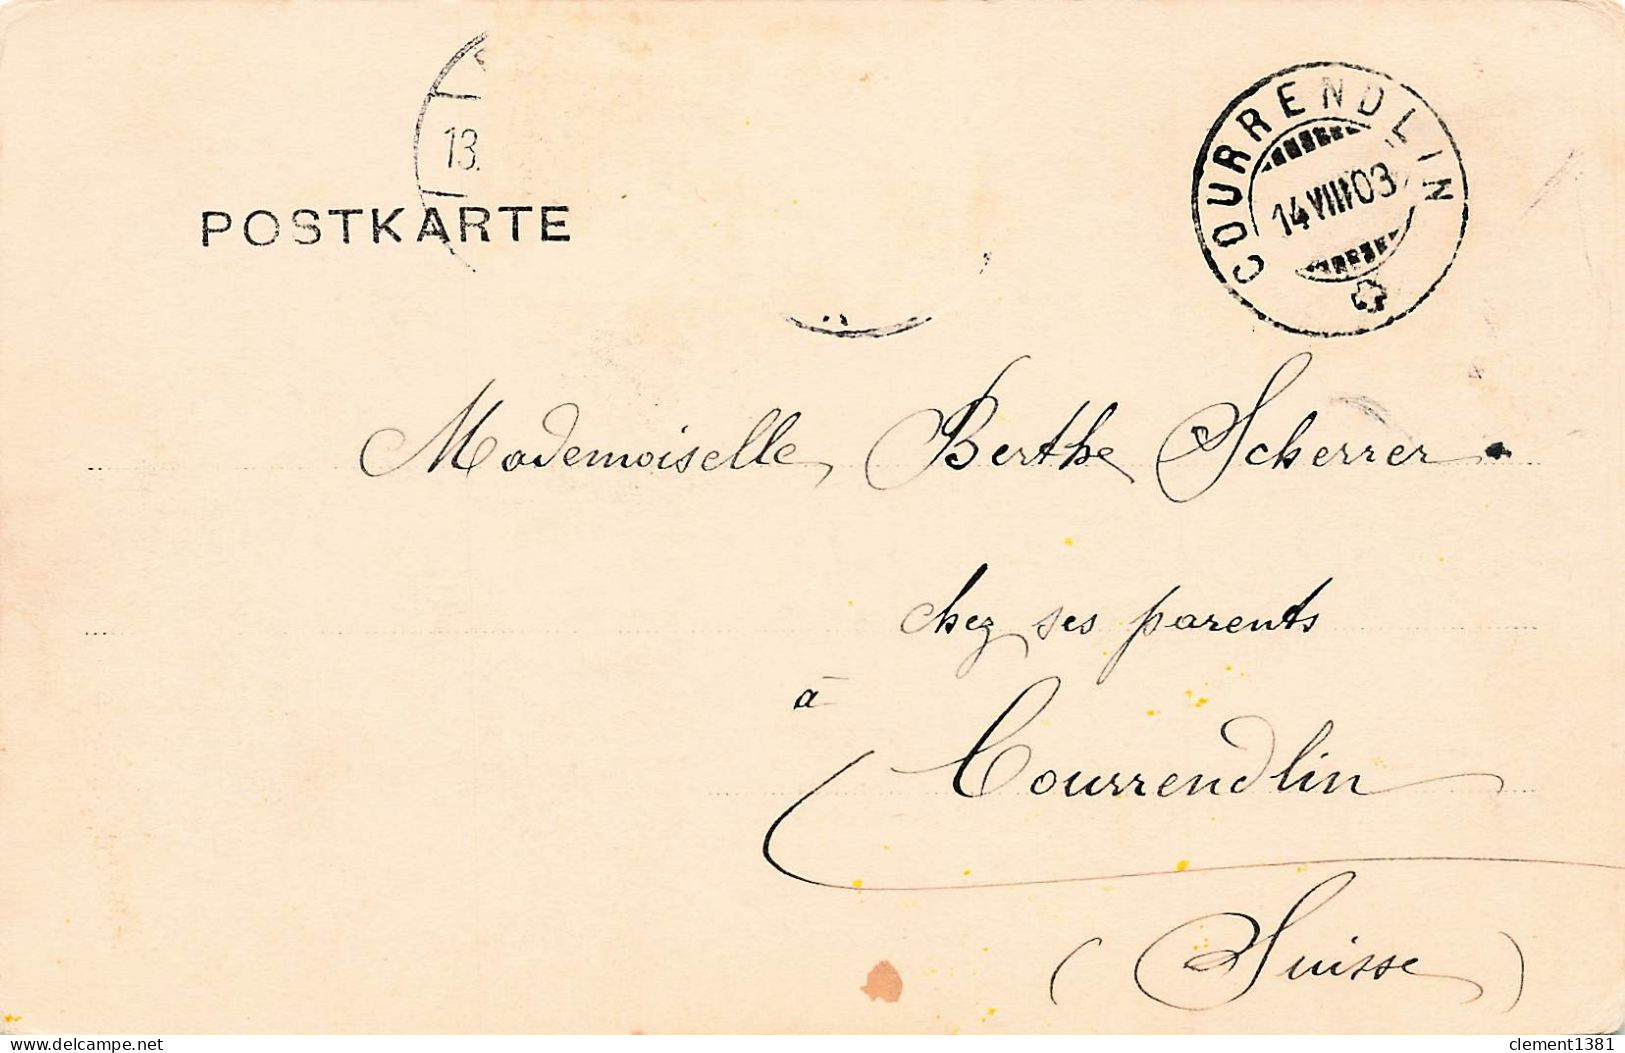 13.
POSTKARTE
COURRENDLIN
14 VIII 03
Mademoiselle Berthe Scherrer
chez ses parents
à
Courrendlin
(Suisse)
clement1381